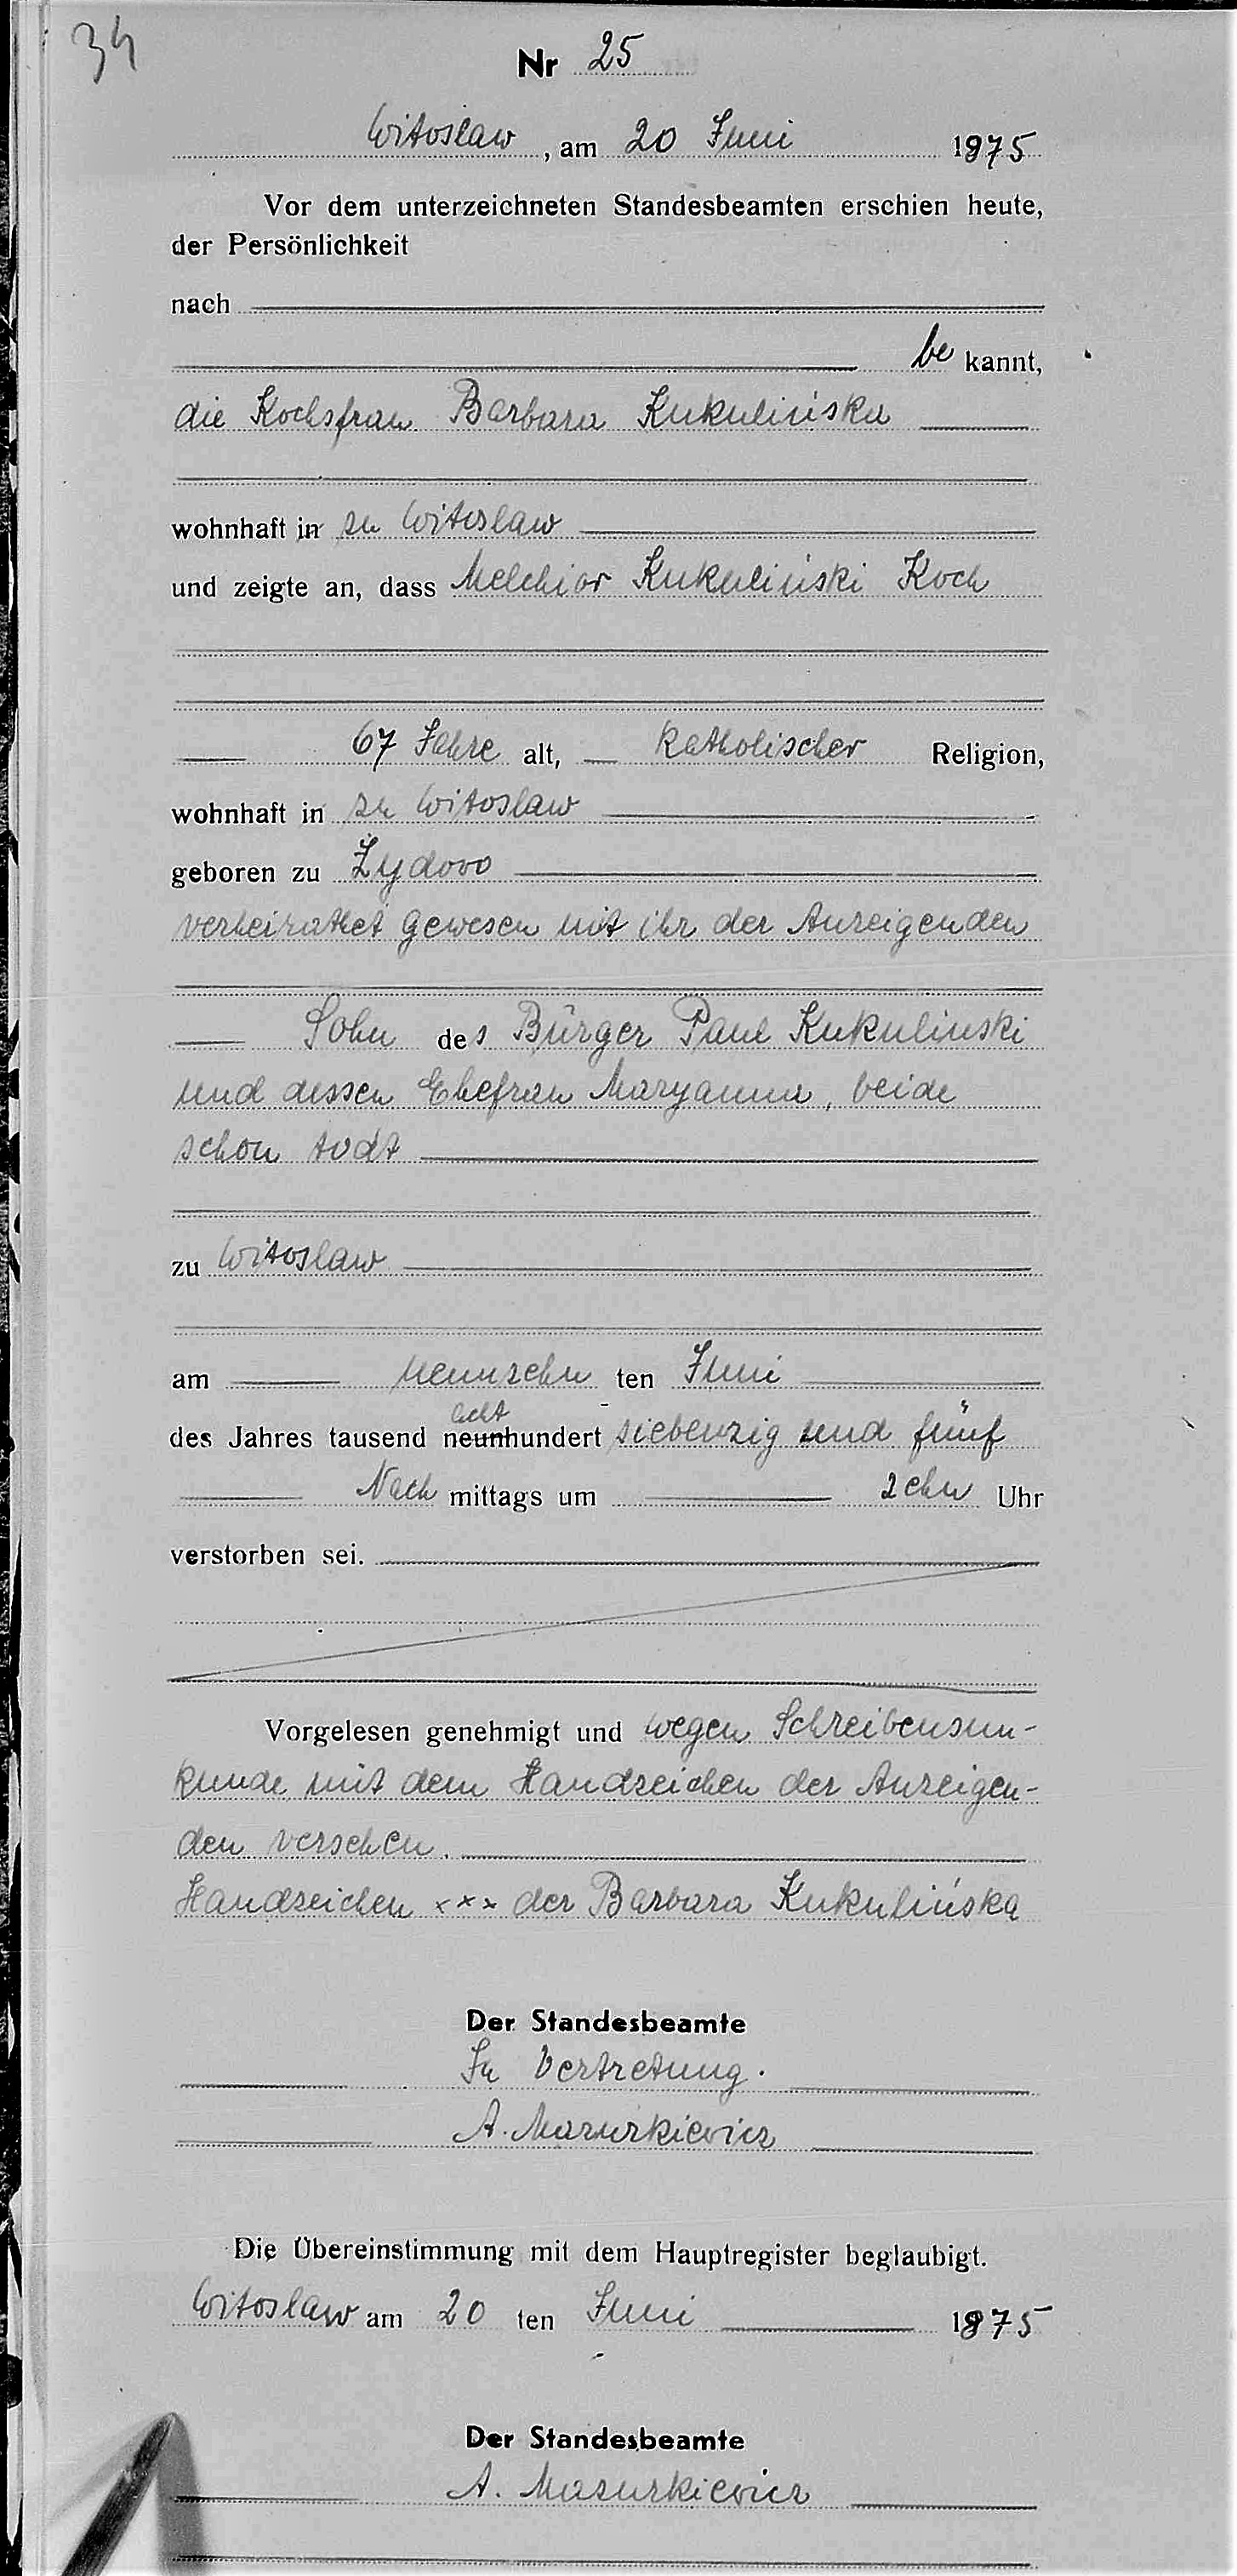 34
Nr 25
Witoslaw, am 20 Juni 1875
Vor dem unterzeichneten Standesbeamten erschien heute,
der Persönlichkeit
nach
be kannt,
die Kochsfrau Barbara Kukulińska
wohnhaft in zu Witoslaw
und zeigte an, dass Melchior Kukuliński Koch
67 Jahre alt, katholischer Religion,
wohnhaft in zu Witoslaw
geboren zu Żydowo
verheirathet gewesen mit ihr der Anzeigenden
Sohn des Bürger Paul Kukulinski
und dessen Ehefrau Maryanna, beide
schon todt
zu Witoslaw
am neunzehn ten Juni
acht
des Jahres tausend neunhundert siebenzig und fünf
Nach mittags um zehn Uhr
verstorben sei.
Vorgelesen genehmigt und wegen Schreibensun-
kunde mit dem Handzeichen der Anzeigen-
den versehen.
Handzeichen xxx der Barbara Kukulińska
Der Standesbeamte
In Vertretung.
A. Mazurkiewicz
Die Übereinstimmung mit dem Hauptregister beglaubigt.
Witoslaw am 20 ten Juni 1875
Der Standesbeamte
A. Mazurkiewicz